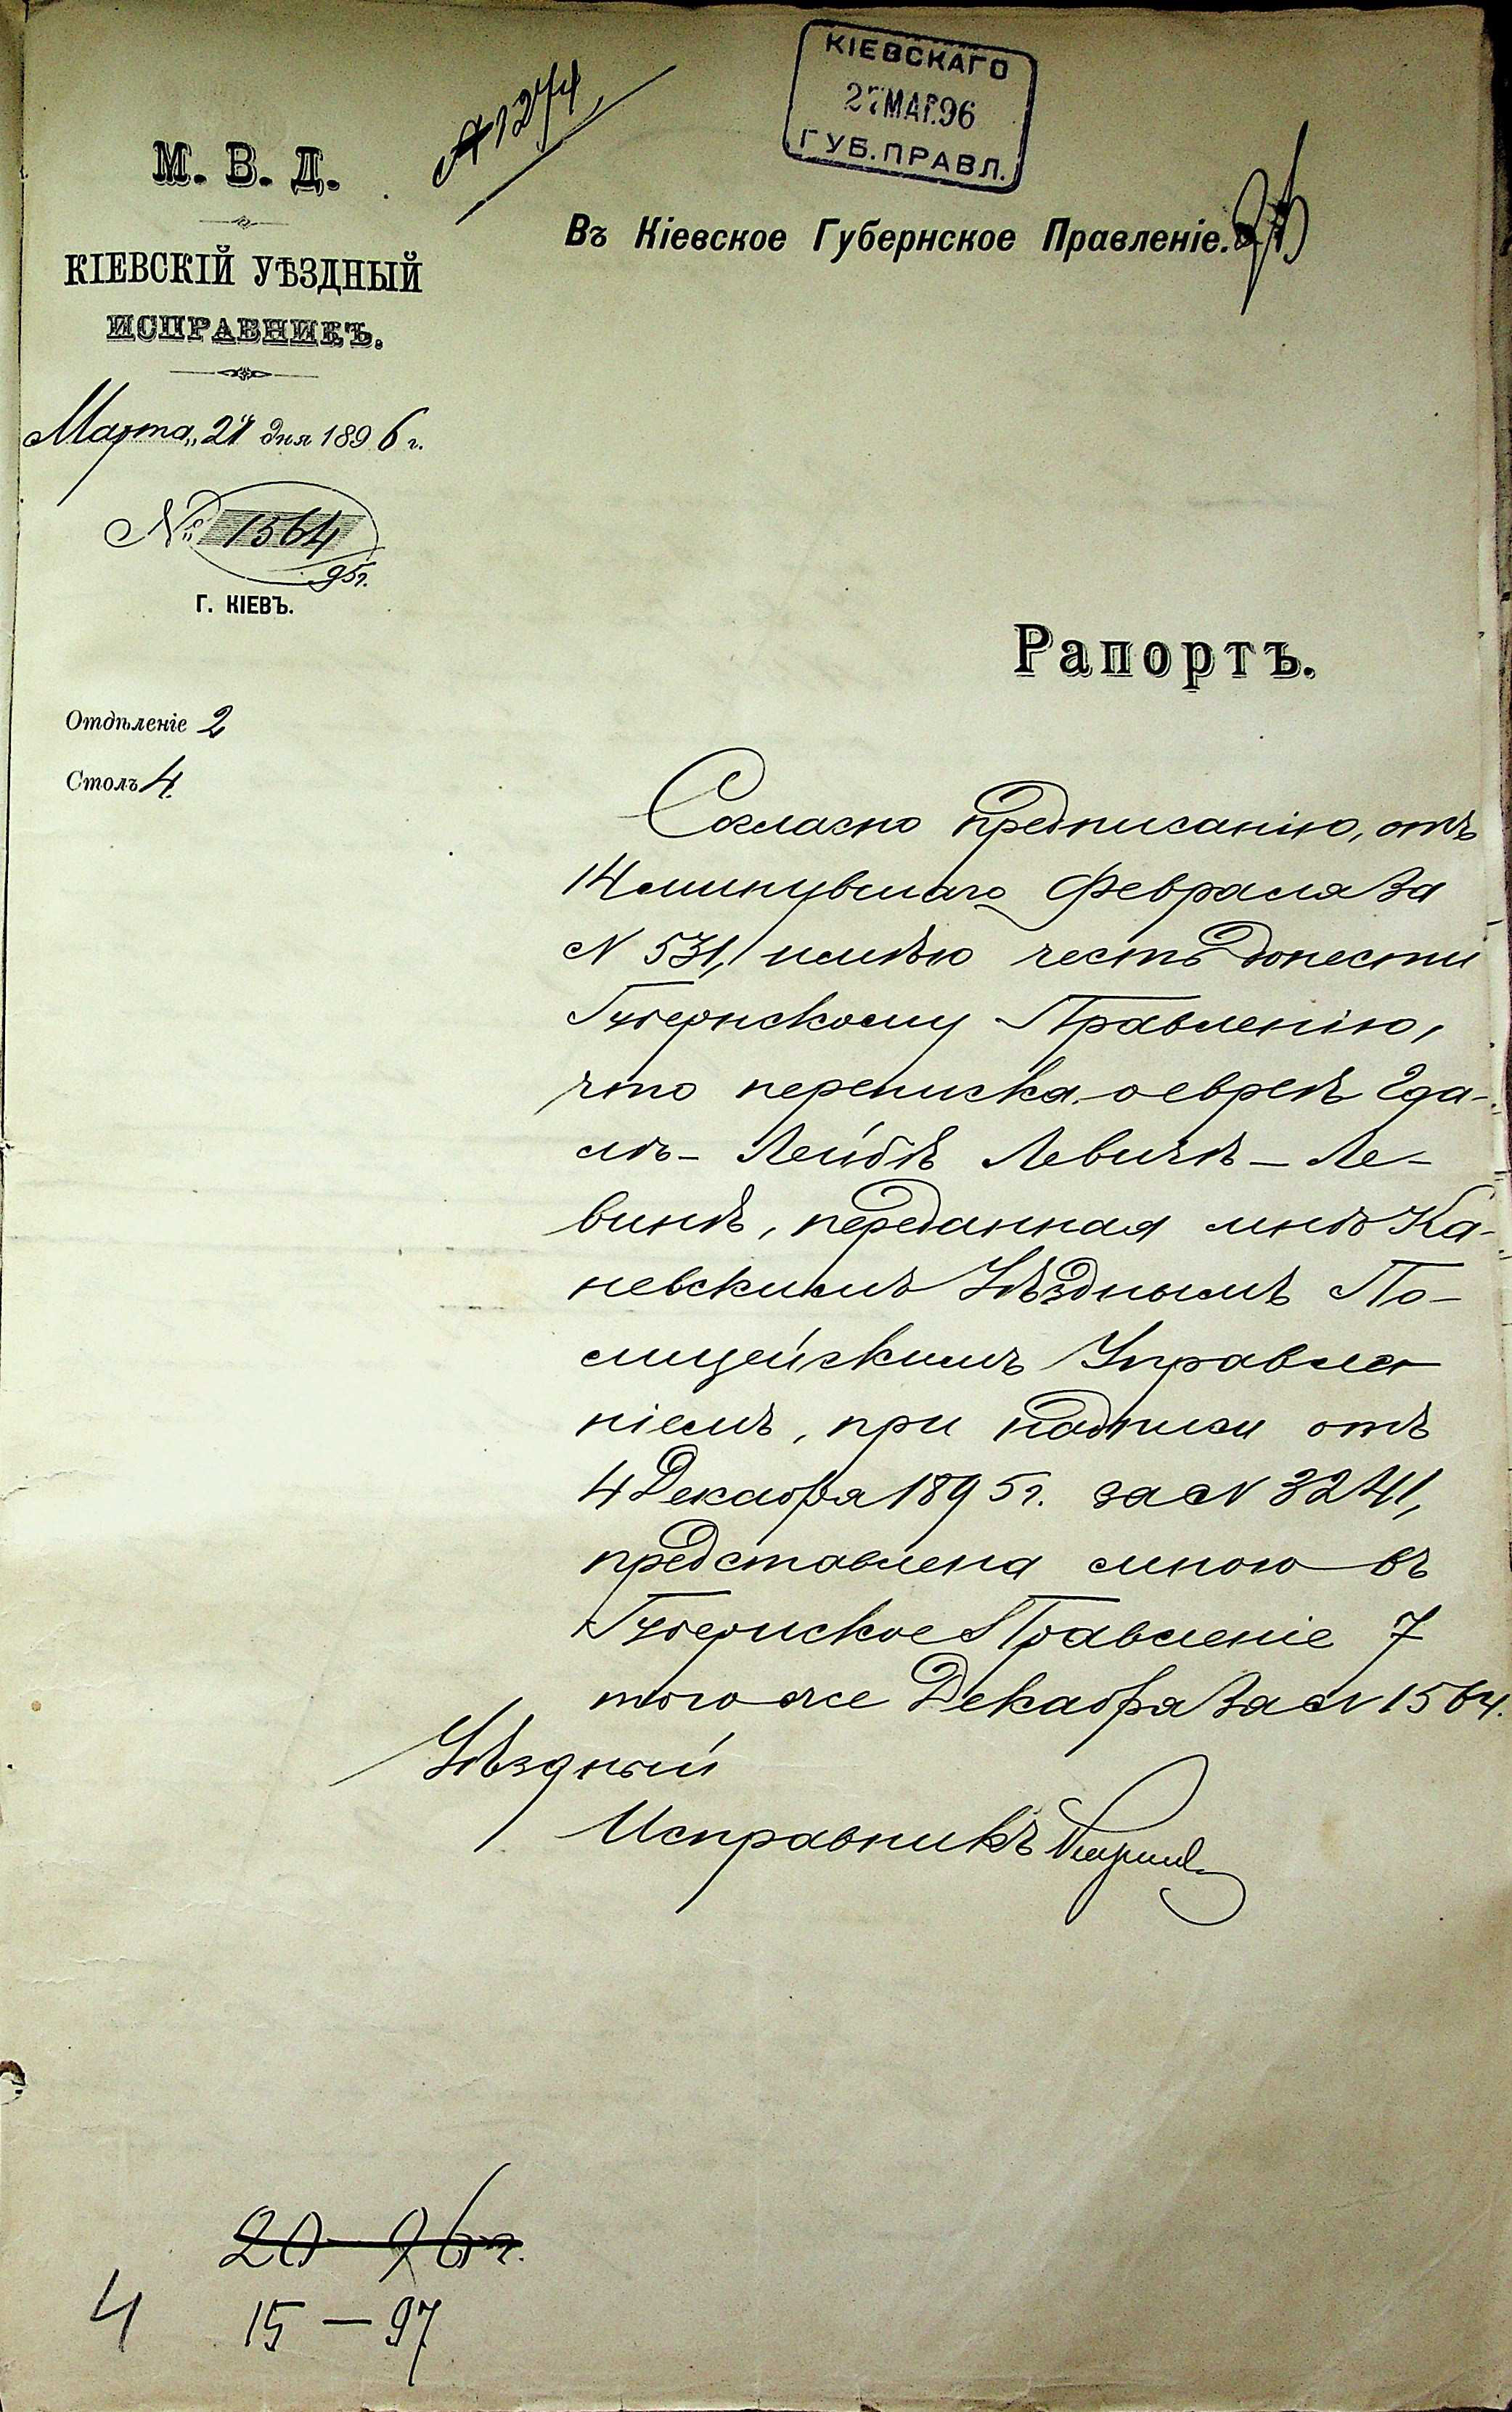 КІЕВСКАГО
27 МАР.96
ГУБ.ПРАВЛ.
№ 1274
М. В. Д.
КІЕВСКІЙ УѢЗДНЫЙ
ИСПРАВНИКЪ.
Марта „21" дня 1896 г.
№ 1564
95г.
Г. КІЕВЪ.
Отдѣленіе 2
Столъ 4
Въ Кіевское Губернское Правленіе.
Рапортъ.
Согласно предписанію, отъ
14 минувшаго Февраля за
№ 531, имѣю честь донести
Губернскому Правленію,
что переписка о евреѣ Эда-
лѣ- Лейбѣ Левичѣ - Ле-
винѣ, переданная мнѣ Ка-
невскимъ Уѣзднымъ По-
лицейскимъ Управле-
ніемъ, при надписи отъ
4 Декабря 1895 г. за № 3241,
представлена мною въ
Губернское Правленіе 7
того же Декабря за № 1564.
Уѣздный
Исправникъ
20 - 96 г.
15 - 97
4